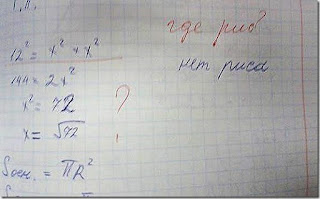 12² = x² + x²
144 = 2x²
x² = 72
x = √72
Sосн. = πR²
где рис?
нет риса
?